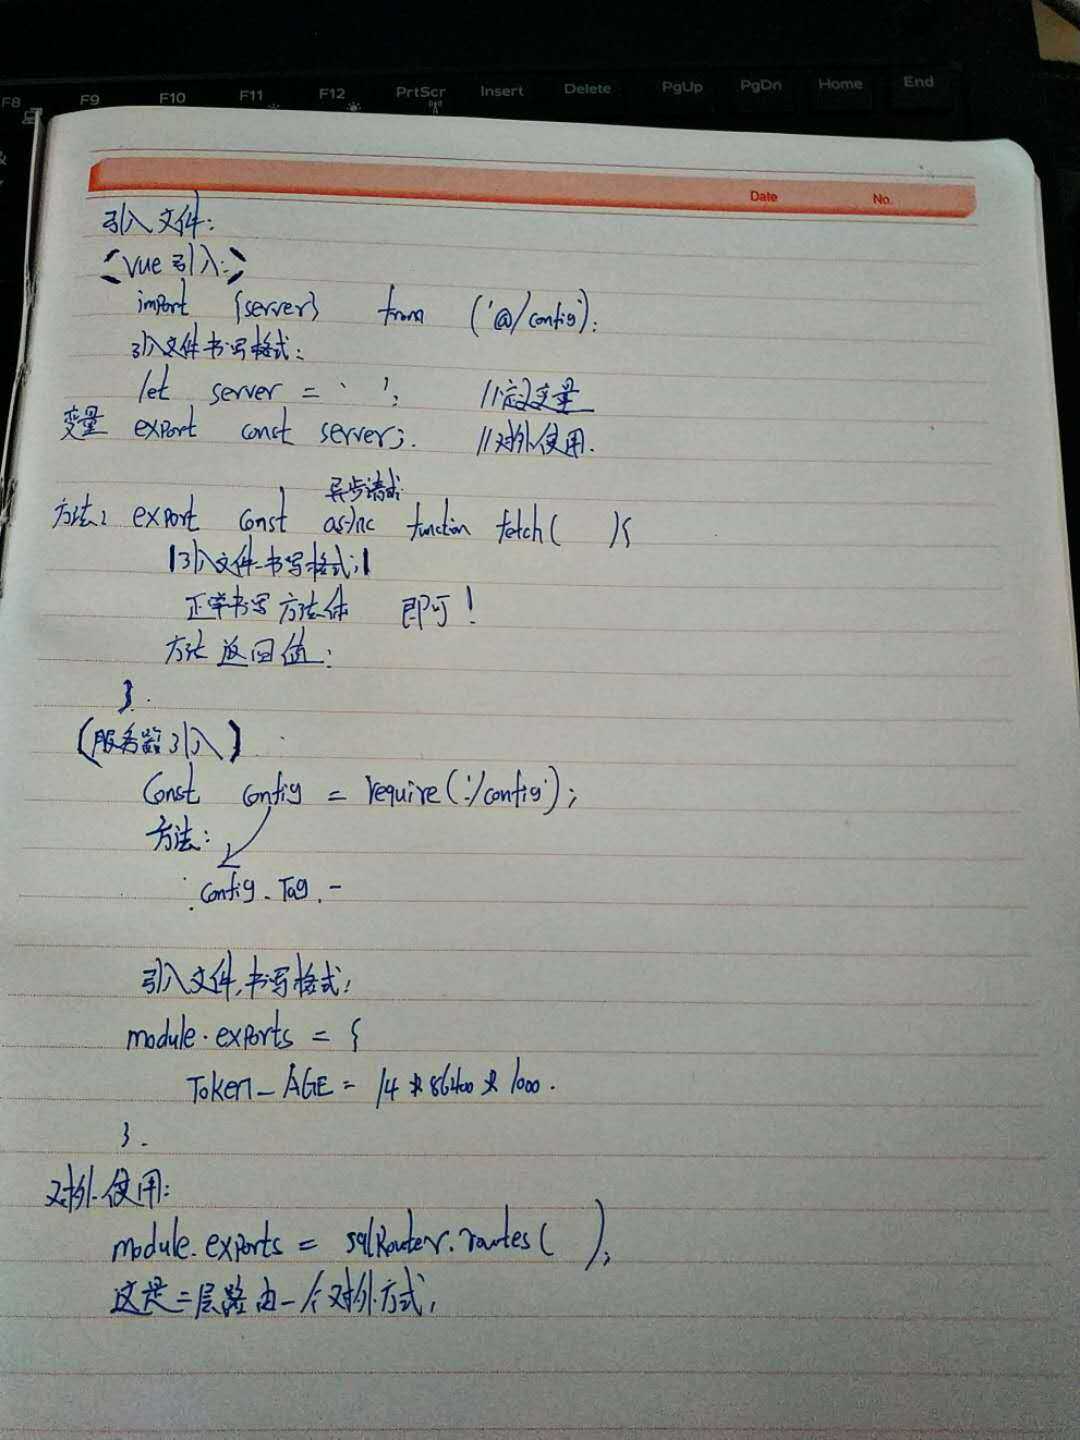 F8 F9 F10 F11 F12 PrtScr Insert Delete PgUp PgDn Home End
Date No.
引入文件:
(Vue 引入:)
import {server} from ('@/config');
引入文件书写格式:
let server = ' '; //定义变量
变量 export const server; //对外使用.
异步请求
方法: export const async function fetch( ){
引入文件书写格式;
正常书写方法体 即可!
方法返回值:
}.
(服务器引入)
Const config = require('./config');
方法:
config.Tag.-
引入文件,书写格式;
module.exports = {
Token_AGE = 14 * 86400 * 1000.
}.
对外使用:
module.exports = sqlRouter.routes( );
这是二层路由一个对外方式;